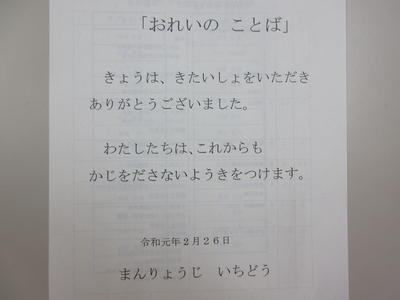 「おれいの ことば」
きょうは、きたいしょをいただき
ありがとうございました。
わたしたちは、これからも
かじをださないようきをつけます。
令和元年２月２６日
まんりょうじ　いちどう